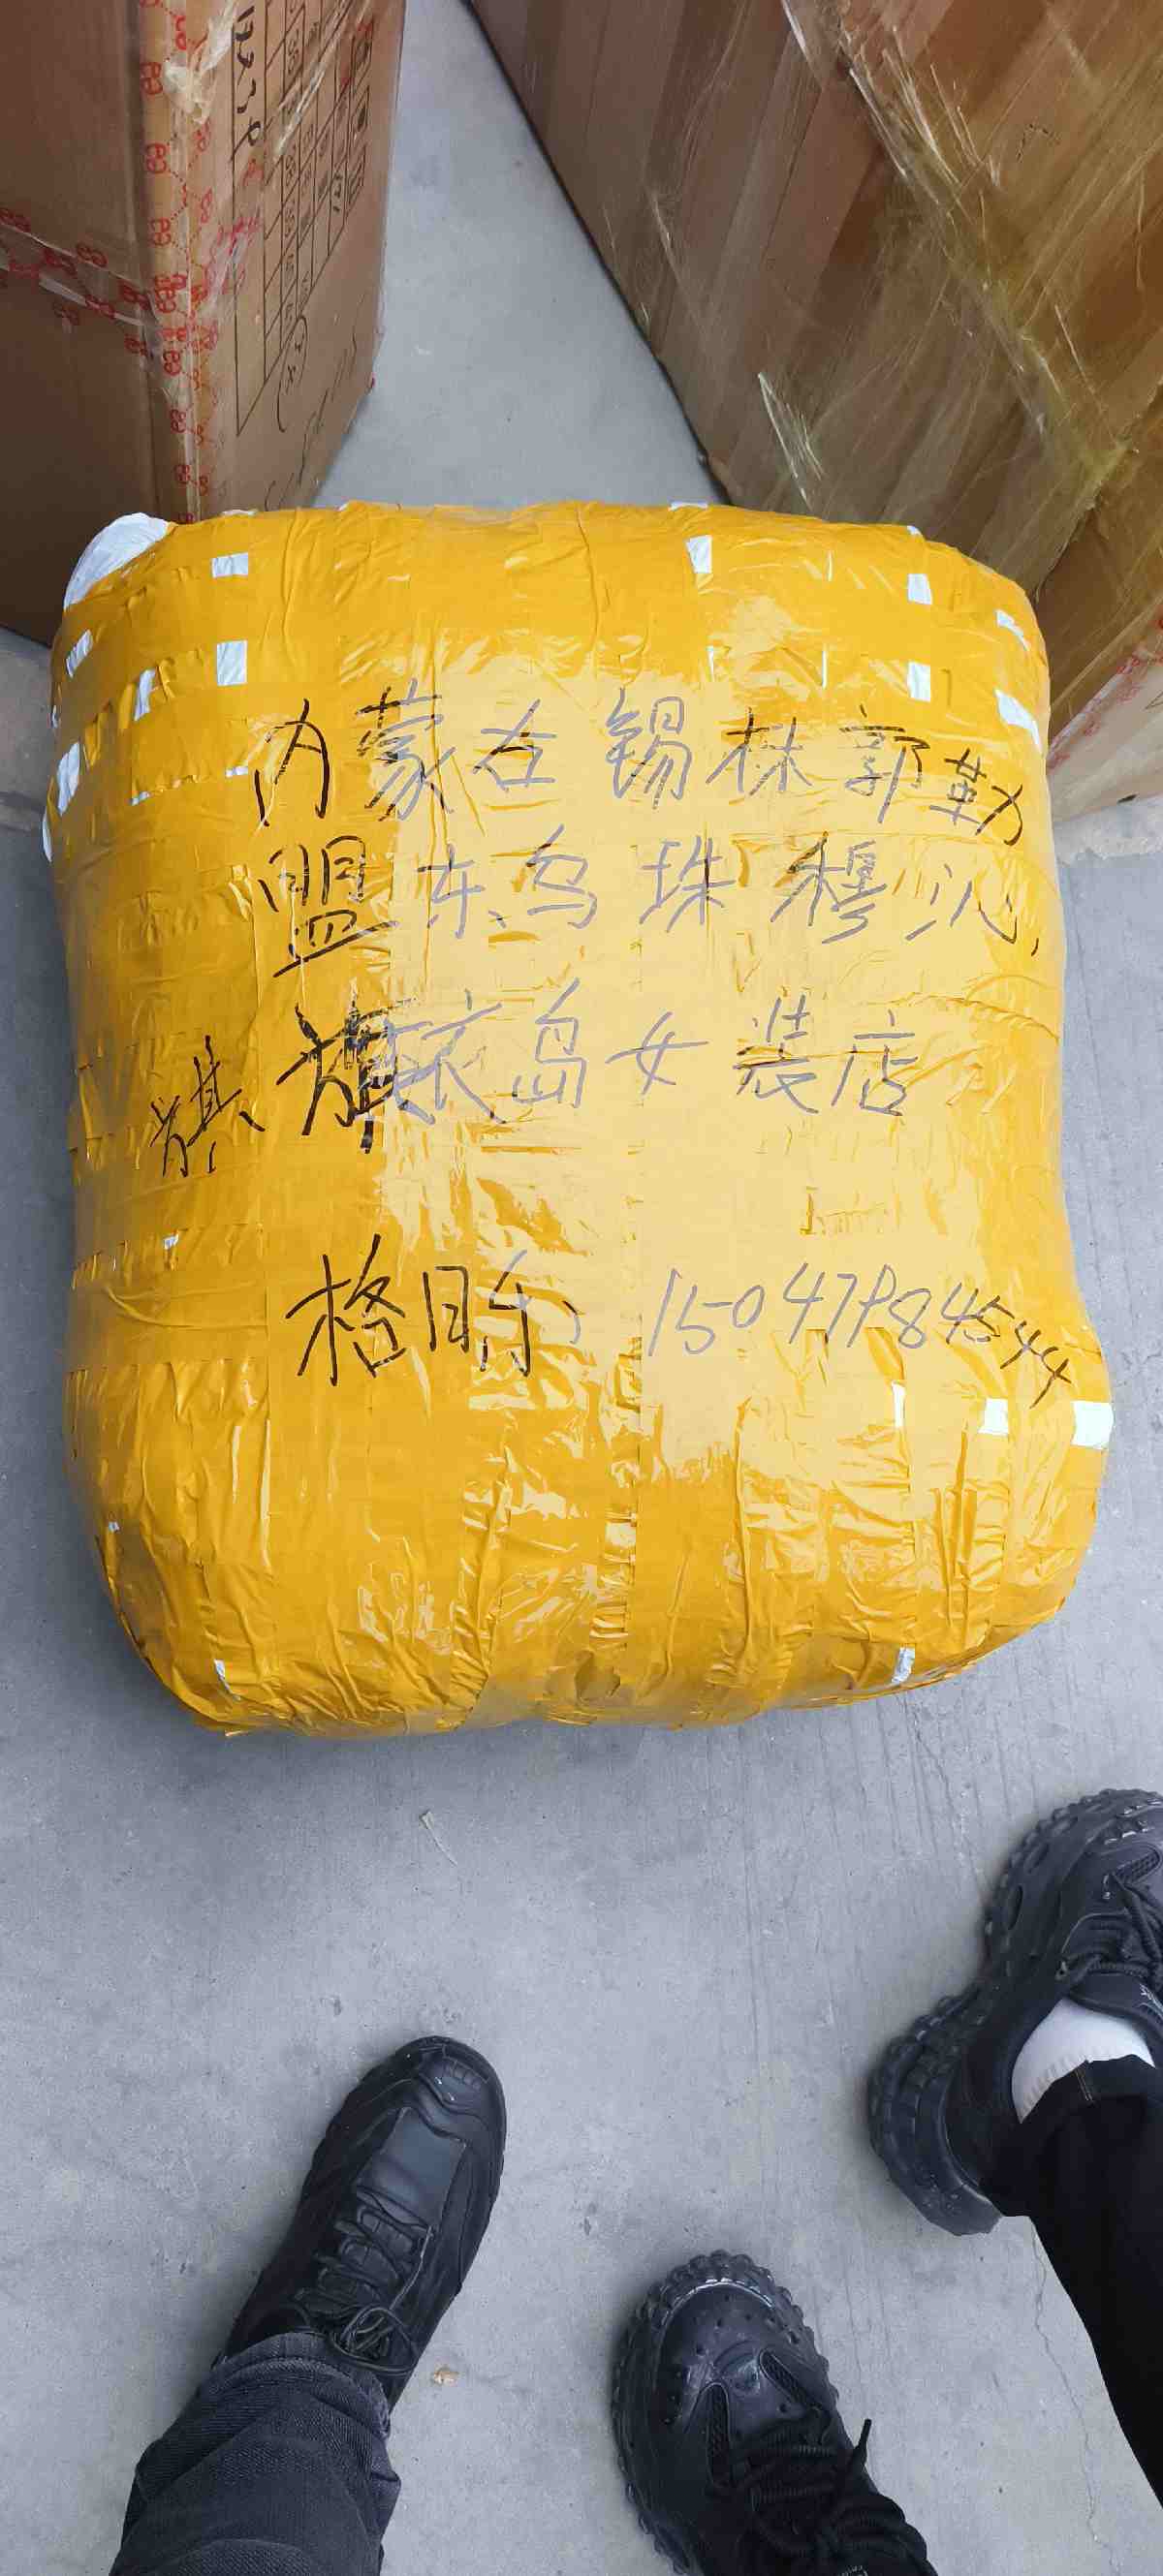 内蒙古锡林郭勒
盟东乌珠穆沁
旗 旗衣岛女装店
格日乐 15047984544